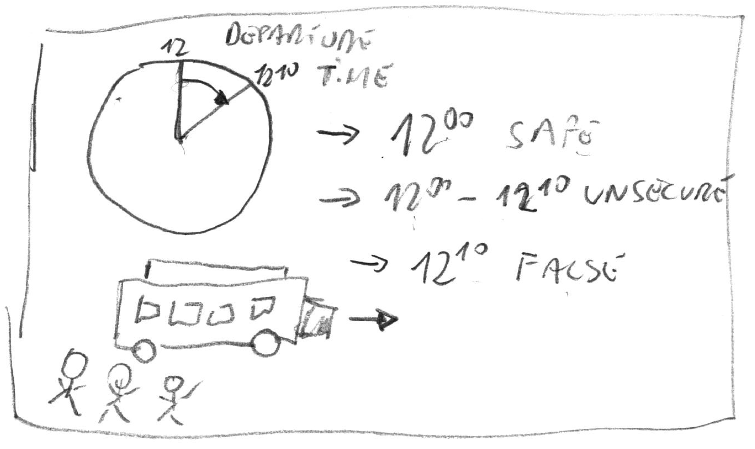 DEPARTURE
TIME
12
12¹⁰
→ 12⁰⁰ SAFE
→ 12⁰⁰ - 12¹⁰ UNSECURE
→ 12¹⁰ FALSE